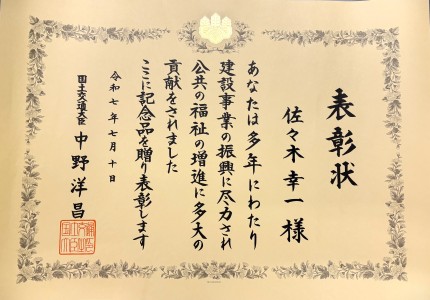 表彰状
佐々木幸一様
あなたは多年にわたり
建設事業の振興に尽力され
公共の福祉の増進に多大の
貢献をされました
ここに記念品を贈り表彰します
令和七年七月十日
国土交通大臣 中野洋昌